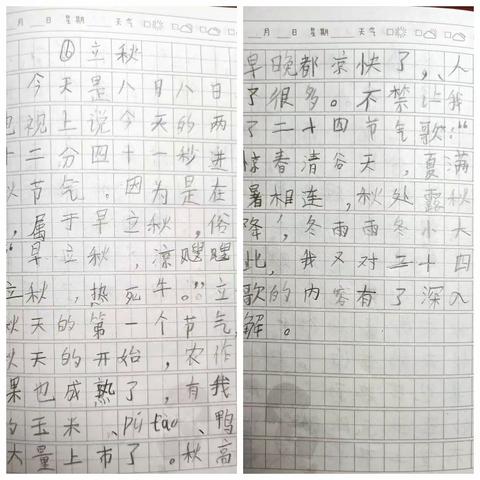 月 日 星期 天气
⑥立秋
今天是八月八日
视上说今天的两
十二分四十一秒进
秋节气。因为是在
，属于早立秋，俗
“早立秋，凉嗖嗖
立秋，热死牛。”立
秋天的第一个节气
秋天的开始，农作
果也成熟了，有我
的玉米、pú táo、鸭
大量上市了。秋高
月 日 星期 天气
早晚都凉快了，人
了很多。不禁让我
了二十四节气歌：“
惊春清谷天，夏满
暑相连，秋处露秋
降，冬雨雨冬小大
此，我又对二十四
歌的内容有了深入
解。